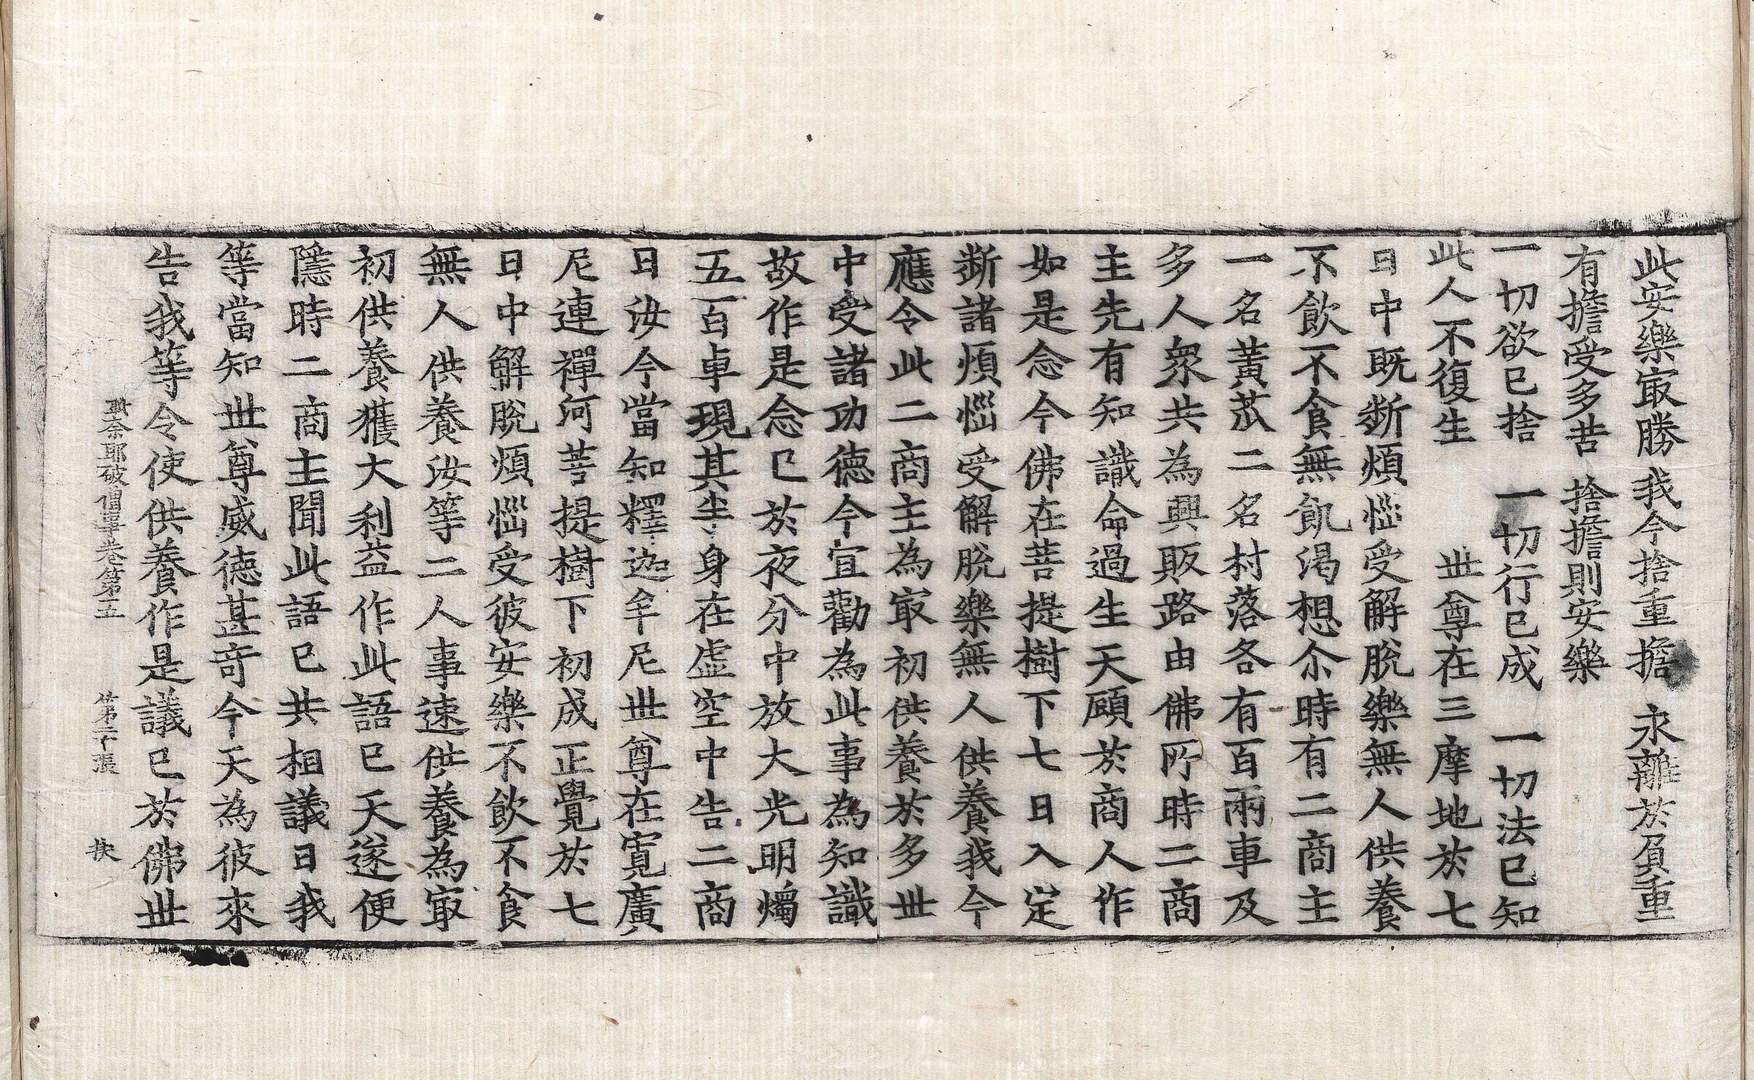 此安樂㝡勝　我今捨重擔　永離於負重
有擔受多苦　捨擔則安樂
一切欲已捨　一切行已成　一切法已知
此人不復生　　世尊在三摩地於七
日中既斷煩惱受解脫樂無人供養
不飲不食無飢渴想尒時有二商主
一名黃苽二名村落各有百兩車及
多人衆共為興販路由佛所時二商
主先有知識命過生天願於商人作
如是念今佛在菩提樹下七日入定
斷諸煩惱受解脫樂無人供養我今
應令此二商主為㝡初供養於多世
中受諸功德今宜勸為此事為知識
故作是念已於夜分中放大光明燭
五百車現其半身在虛空中告二商
曰汝今當知釋迦牟尼世尊在寬廣
尼連禪河菩提樹下初成正覺於七
日中解脫煩惱受彼安樂不飲不食
無人供養汝等二人事速供養為㝡
初供養獲大利益作此語已天遂便
隱時二商主聞此語已共相議曰我
等當知世尊威德甚奇今天為彼來
告我等令使供養作是議已於佛世
奈耶破僧事卷第五　第二十張